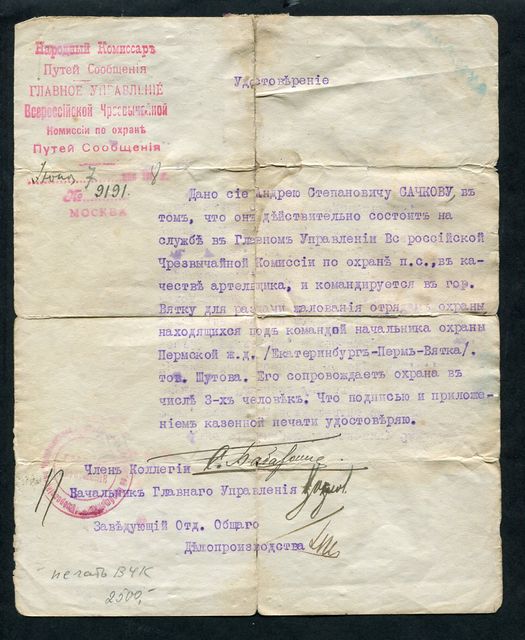 Народный Комиссаръ
Путей Сообщенія
ГЛАВНОЕ УПРАВЛЕНІЕ
Всероссійской Чрезвычайной
Комиссіи по охранѣ
Путей Сообщенія
7 8
№ 9191.
МОСКВА
Удостовѣреніе
Дано сіе Андрею Степановичу САЧКОВУ, въ
томъ, что онъ дѣйствительно состоитъ на
службѣ въ Главномъ Управленіи Всероссійской
Чрезвычайной Комиссіи по охранѣ п.с., въ ка-
чествѣ артельщика, и командируется въ гор.
Вятку для раздачи жалованія отрядамъ охраны
находящихся подъ командой начальника охраны
Пермской ж.д. /Екатеринбургъ-Пермь-Вятка/.
тов. Шутова. Его сопровождаетъ охрана въ
числѣ 3-хъ человѣкъ. Что подписью и приложе-
ніемъ казенной печати удостовѣряю.
Членъ Коллегіи
Начальникъ Главнаго Управленія
Завѣдующій Отд. Общаго
Дѣлопроизводства
печать ВЧК
2500,-